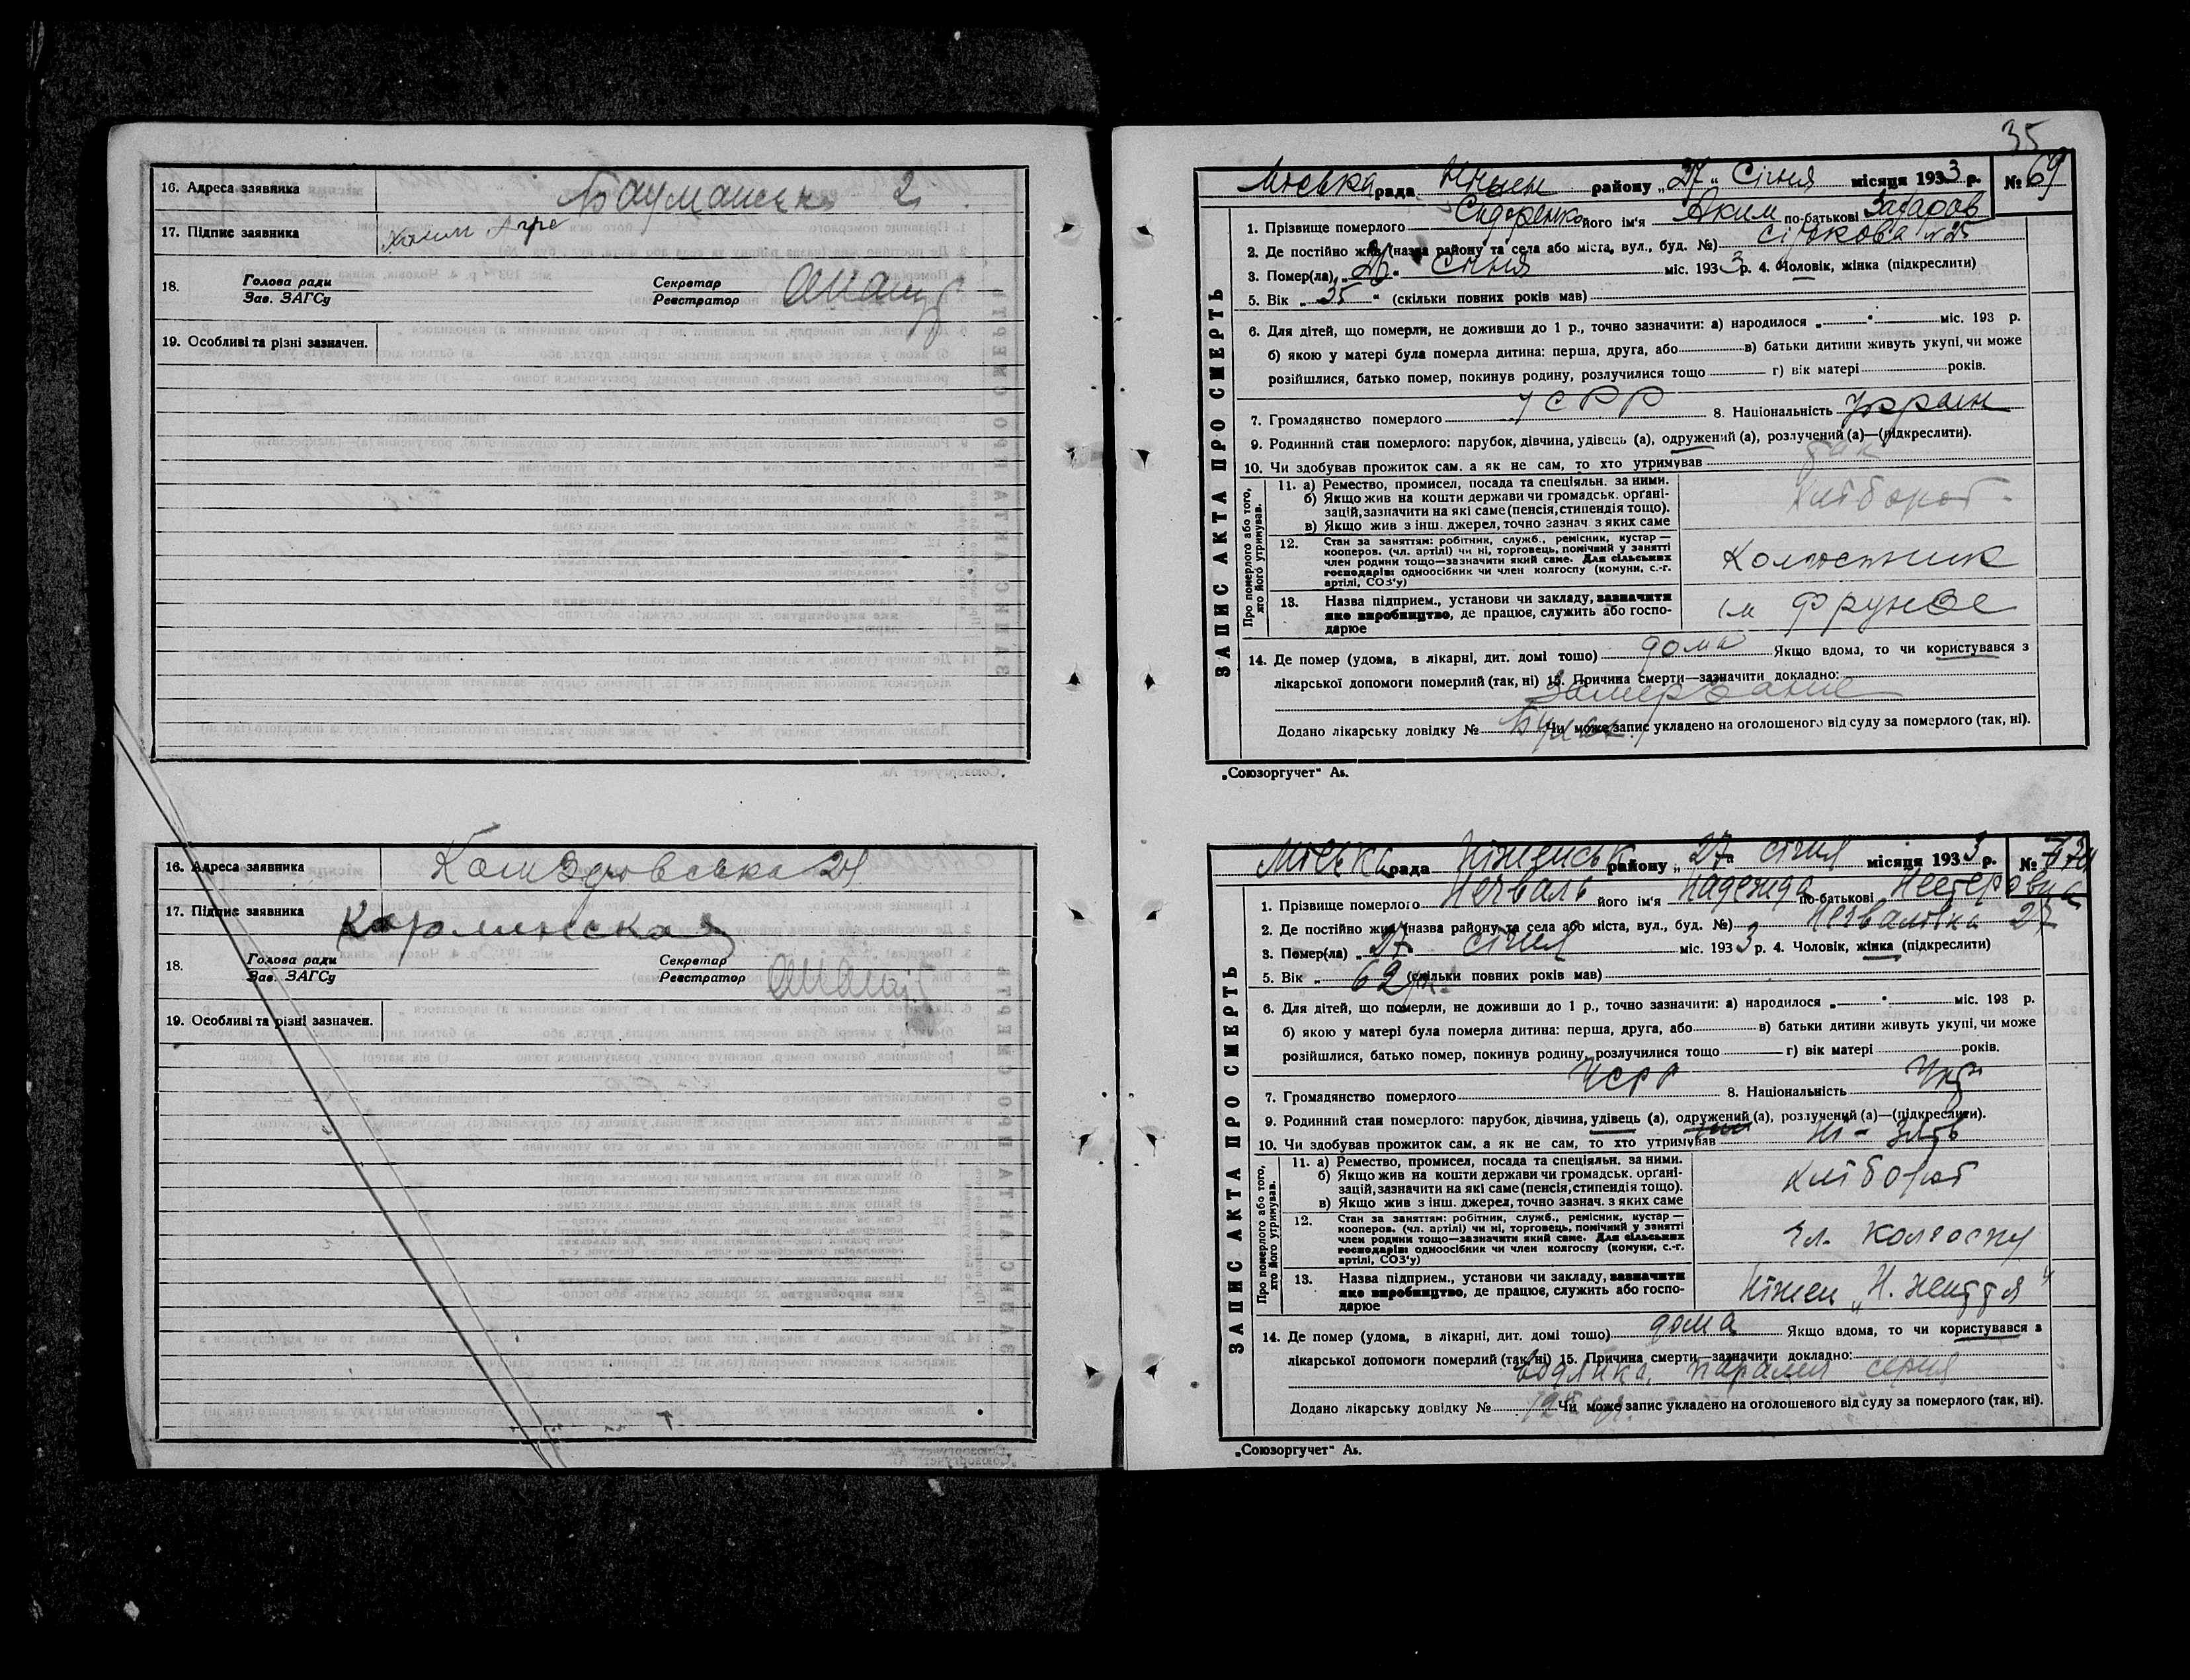 16. Адреса заявника Бауманськ 2
17. Підпис заявника
18. Голова ради Секретар
Зав. ЗАГСу Реєстратор
19. Особливі та різні зазначен.
16. Адреса заявника 21
17. Підпис заявника
18. Голова ради Секретар
Зав. ЗАГСу Реєстратор
19. Особливі та різні зазначен.
35
Міська рада Ніжен району „27" Січня місяця 1933 р. № 69
ЗАПИС АКТА ПРО СМЕРТЬ
1. Прізвище померлого Сидоренко його ім'я Аким по-батькові Захаров
2. Де постійно жив (назва району та села або міста, вул., буд. №) №25
3. Помер(ла) „26" Січня міс. 1933 р. 4. Чоловік, жінка (підкреслити)
5. Вік „35" (скільки повних років мав)
6. Для дітей, що померли, не доживши до 1 р., точно зазначити: а) народилося „ " міс. 193 р.
б) якою у матері була померла дитина: перша, друга, або в) батьки дитини живуть укупі, чи може
розійшлися, батько помер, покинув родину, розлучилися тощо г) вік матері років.
7. Громадянство померлого УСРР 8. Національність Украин
9. Родинний стан померлого: парубок, дівчина, удівець (а), одружений (а), розлучений (а)—(підкреслити).
10. Чи здобував прожиток сам, а як не сам, то хто утримував так
Про померлого або того, хто його утримував.
11. а) Ремество, промисел, посада та спеціяльн. за ними.
б) Якщо жив на кошти держави чи громадськ. орґані-
зацій, зазначити на які саме (пенсія, стипендія тощо).
в) Якщо жив з інш. джерел, точно зазнач. з яких саме
хліборот
12. Стан за заняттям: робітник, служб., ремісник, кустар —
кооперов. (чл. артілі) чи ні, торговець, помічний у занятті
член родини тощо—зазначити який саме. Для сільських
господарів: одноосібник чи член колгоспу (комуни, с.-г.
артілі, СОЗ'у)
Колгоспник
13. Назва підприєм., установи чи закладу, зазначити
яке виробництво, де працює, служить або госпо-
дарює
ім Фрунзе
14. Де помер (удома, в лікарні, дит. домі тощо) дома Якщо вдома, то чи користувався з
лікарської допомоги померлий (так, ні) 15. Причина смерти—зазначити докладно:
Замерзание
Додано лікарську довідку № Чи може запис укладено на оголошеного від суду за померлого (так, ні).
„Союзоргучет" Аь.
Міська рада Ніженськ району „27" січня місяця 1933 р. №
ЗАПИС АКТА ПРО СМЕРТЬ
1. Прізвище померлого Нечваль його ім'я Надежда по-батькові Нестеровна
2. Де постійно жив (назва району та села або міста, вул., буд. №) 27
3. Помер(ла) „27 січня міс. 1933 р. 4. Чоловік, жінка (підкреслити)
5. Вік „62 (скільки повних років мав)
6. Для дітей, що померли, не доживши до 1 р., точно зазначити: а) народилося „ " міс. 193 р.
б) якою у матері була померла дитина: перша, друга, або в) батьки дитини живуть укупі, чи може
розійшлися, батько помер, покинув родину, розлучилися тощо г) вік матері років.
7. Громадянство померлого УСРР 8. Національність Укр
9. Родинний стан померлого: парубок, дівчина, удівець (а), одружений (а), розлучений (а)—(підкреслити).
10. Чи здобував прожиток сам, а як не сам, то хто утримував ні - зять
Про померлого або того, хто його утримував.
11. а) Ремество, промисел, посада та спеціяльн. за ними.
б) Якщо жив на кошти держави чи громадськ. орґані-
зацій, зазначити на які саме (пенсія, стипендія тощо).
в) Якщо жив з інш. джерел, точно зазнач. з яких саме
хліборот
12. Стан за заняттям: робітник, служб., ремісник, кустар —
кооперов. (чл. артілі) чи ні, торговець, помічний у занятті
член родини тощо—зазначити який саме. Для сільських
господарів: одноосібник чи член колгоспу (комуни, с.-г.
артілі, СОЗ'у)
Чл. Колгоспу
13. Назва підприєм., установи чи закладу, зазначити
яке виробництво, де працює, служить або госпо-
дарює
Ніжен „Н. життя"
14. Де помер (удома, в лікарні, дит. домі тощо) дома Якщо вдома, то чи користувався з
лікарської допомоги померлий (так, ні) 15. Причина смерти—зазначити докладно:
водянка,
Додано лікарську довідку № Чи може запис укладено на оголошеного від суду за померлого (так, ні).
„Союзоргучет" Аь.